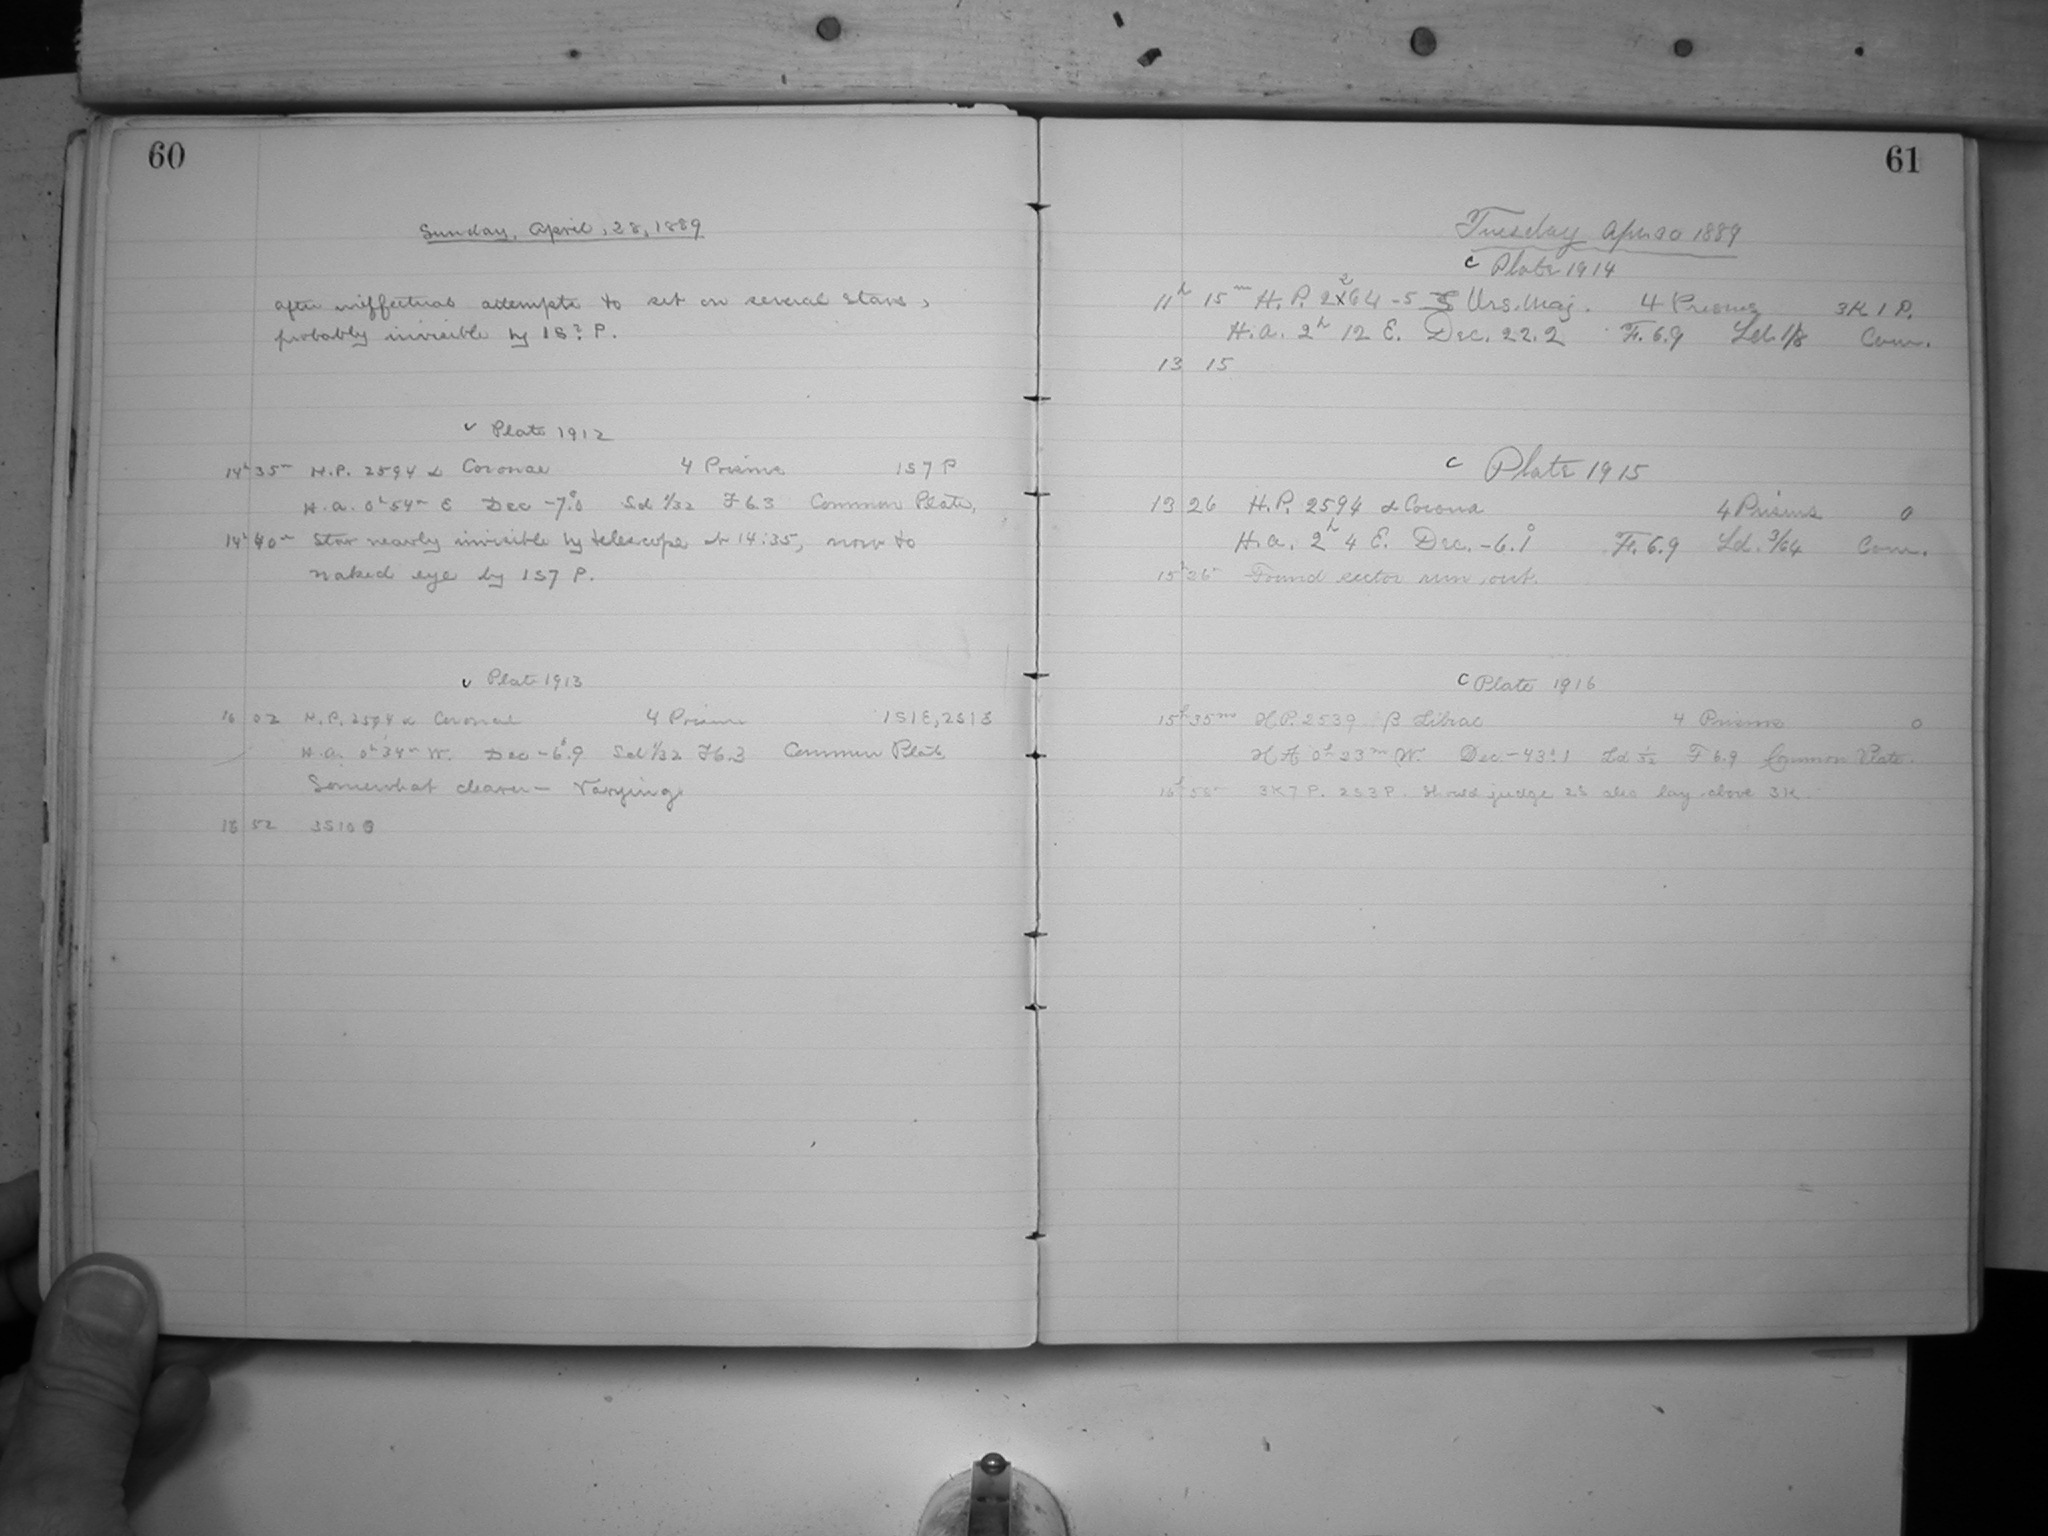 60
Sunday, April, 28, 1889
after ineffectual attempts to set on several stars,
probably invisible by 1S? P.
c Plate 1912
14h 35m H.P. 2594 α Coronae 4 Prisms 1S7 P
H.a. 0h 54m E Dec -7.°0 Sd 1/32 F 6.3 Common Plate,
14h 40m Star nearly invisible by telescope at 14:35, now to
naked eye by 1S7 P.
c Plate 1913
16 02 H.P. 2594 α Coronae 4 Prisms
H.a. 0h 34m W. Dec -6.°9 Sd 1/32 F 6.3 Common Plate
Somewhat clearer - Varying
52 3S10
61
Tuesday Apr. 30 1889
c Plate 1914
11h 15m H.P. 2264-5 ζ Urs. Maj. 4 Prisms 3K 1 P.
H.a. 2h 12 E. Dec. 22.2 F. 6.9 Ld. 1/8 Com.
13 15
c Plate 1915
13 26 H.P. 2594 α Corona 4 Prisms 0
H.a. 2h 4 E. Dec. -6.°1 F. 6.9 Ld. 3/64 Com.
15h 26m Found sector run out.
c Plate 1916
15h 35m H.P. 2539 β Librae 4 Prisms 0
H A 0h 23m W. Dec -43°.1 Ld 1/32 F 6.9 Common Plate.
3K7 P. 2S3 P. Should judge 2S also lay above 3K.